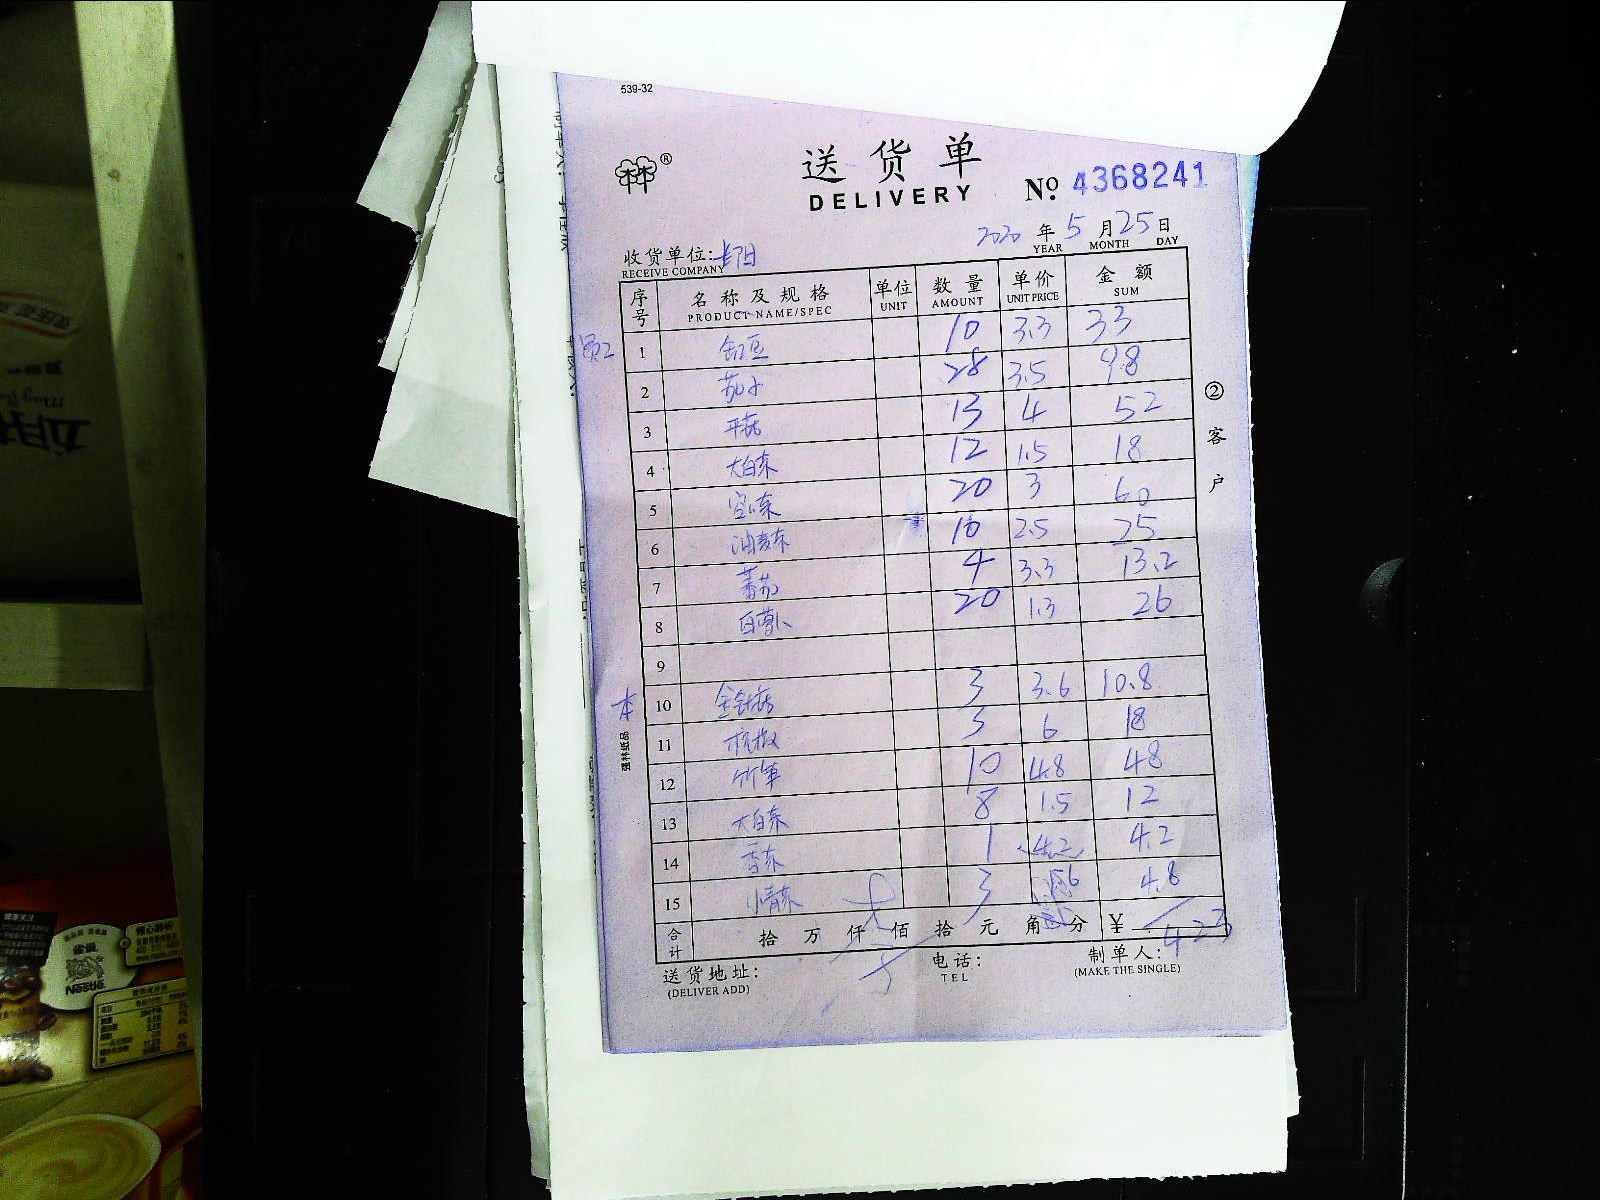 539-32
送货单
DELIVERY
No. 4368241
2020 年 5 月 25 日
YEAR MONTH DAY
收货单位:
RECEIVE COMPANY
序号 名称及规格 单位 数量 单价 金额
PRODUCT NAME/SPEC UNIT AMOUNT UNIT PRICE SUM
员工 1 豆 10 3.3 33
2 茄子 28 3.5 98
3 平菇 13 4 52
4 大白菜 12 1.5 18
5 空心菜 20 3 60
6 油麦菜 10 2.5 25
7 蕃茄 4 3.3 13.2
8 白萝卜 20 1.3 26
9
本 10 金针菇 3 3.6 10.8
11 杭椒 3 6 18
12 竹笋 10 4.8 48
13 大白菜 8 1.5 12
14 香菜 1 4.2 4.2
15 小青菜 3 1.6 4.8
合计 拾 万 仟 佰 拾 元 角 分 ¥ 423
送货地址:
(DELIVER ADD)
电话:
TEL
制单人:
(MAKE THE SINGLE)
②客户
强林纸品
雀巢
Nestlé